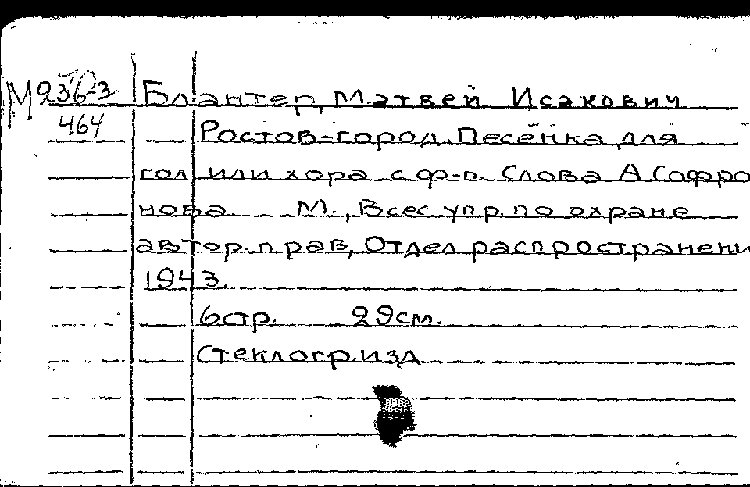 М 236-3 Блантер, Матвей Исакович
464 Ростов-город. Песенка для
гол или хора с ф-п. Слова А Софро
нова М., Всес упр. по охране
автор. прав, Отдел распространени
1943.
6 стр. 29 см.
Стеклогр. изд